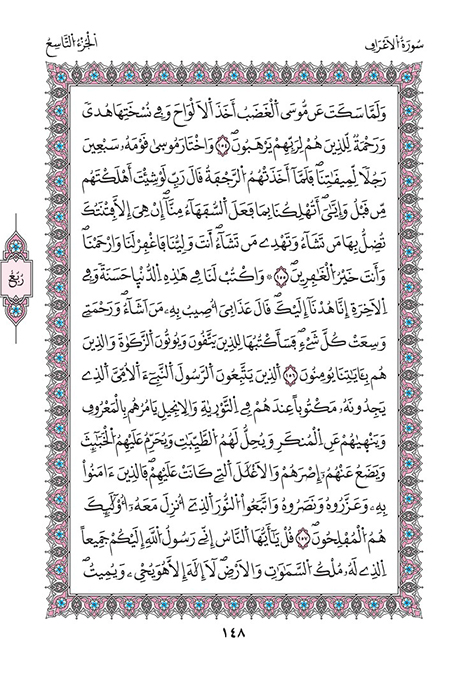 سُورَةُ الْأَعْرَافِ
الْجُزْءُ التَّاسِعُ
وَلَمَّا سَكَتَ عَن مُّوسَى اَلْغَضَبُ أَخَذَ اَلَالْوَاحَ وَفِے نُسْخَتِهَا هُدىٗ
وَرَحْمَةٞ لِّلذِينَ هُمْ لِرَبِّهِمْ يَرْهَبُونَۖ ١٥٤ وَاخْتَارَ مُوسىٰ قَوْمَهُۥ سَبْعِينَ
رَجُلاٗ لِّمِيقَٰتِنَاۖ فَلَمَّآ أَخَذَتْهُمُ اُلرَّجْفَةُ قَالَ رَبِّ لَوْ شِئْتَ أَهْلَكْتَهُم
مِّن قَبْلُ وَإِيَّٰيَۖ أَتُهْلِكُنَا بِمَا فَعَلَ اَلسُّفَهَآءُ مِنَّآۖ إِنْ هِيَ إِلَّا فِتْنَتُكَ
تُضِلُّ بِهَا مَن تَشَآءُ وَتَهْدِے مَن تَشَآءُۖ أَنتَ وَلِيُّنَا فَاغْفِرْ لَنَا وَارْحَمْنَا
وَأَنتَ خَيْرُ اُلْغَٰفِرِينَۖ ١٥٥ ۞ وَاكْتُبْ لَنَا فِے هَٰذِهِ اِلدُّنْيَا حَسَنَةٗ وَفِے
اِلَاخِرَةِ إِنَّا هُدْنَآ إِلَيْكَۖ قَالَ عَذَابِيَ أُصِيبُ بِهِۦ مَنَ اَشَآءُۖ وَرَحْمَتِے
وَسِعَتْ كُلَّ شَےْءٖۖ فَسَأَكْتُبُهَا لِلذِينَ يَتَّقُونَ وَيُوتُونَ اَلزَّكَوٰةَ وَالذِينَ
هُم بِـَٔايَٰتِنَا يُومِنُونَۖ ١٥٦ اَلذِينَ يَتَّبِعُونَ اَلرَّسُولَ اَلنَّبِےٓءَ اَلُامِّيَّ اَلذِے
يَجِدُونَهُۥ مَكْتُوباً عِندَهُمْ فِے اِلتَّوْر۪يٰةِ وَالِانجِيلِ يَامُرُهُم بِالْمَعْرُوفِ
وَيَنْه۪يٰهُمْ عَنِ اِلْمُنكَرِ وَيُحِلُّ لَهُمُ اُلطَّيِّبَٰتِ وَيُحَرِّمُ عَلَيْهِمُ اُلْخَبَٰٓئِثَ
وَيَضَعُ عَنْهُمُۥٓ إِصْرَهُمْ وَالَاغْلَٰلَ اَلتِے كَانَتْ عَلَيْهِمْۖ فَالذِينَ ءَامَنُواْ
بِهِۦ وَعَزَّرُوهُ وَنَصَرُوهُ وَاتَّبَعُواْ اُلنُّورَ اَلذِےٓ أُنزِلَ مَعَهُۥٓ أُوْلَٰٓئِكَ
هُمُ اُلْمُفْلِحُونَۖ ١٥٧ قُلْ يَٰٓأَيُّهَا اَلنَّاسُ إِنِّے رَسُولُ اُللَّهِ إِلَيْكُمْ جَمِيعاً
اِلذِے لَهُۥ مُلْكُ اُلسَّمَٰوَٰتِ وَالَارْضِۖ لَآ إِلَٰهَ إِلَّا هُوَ يُحْيِۦ وَيُمِيتُۖ
رُبُع
١٤٨